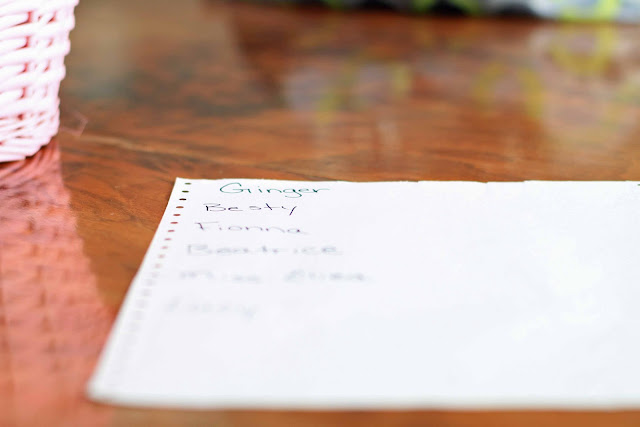 Giinger
Besty
Fionna
Beatrice
Miss